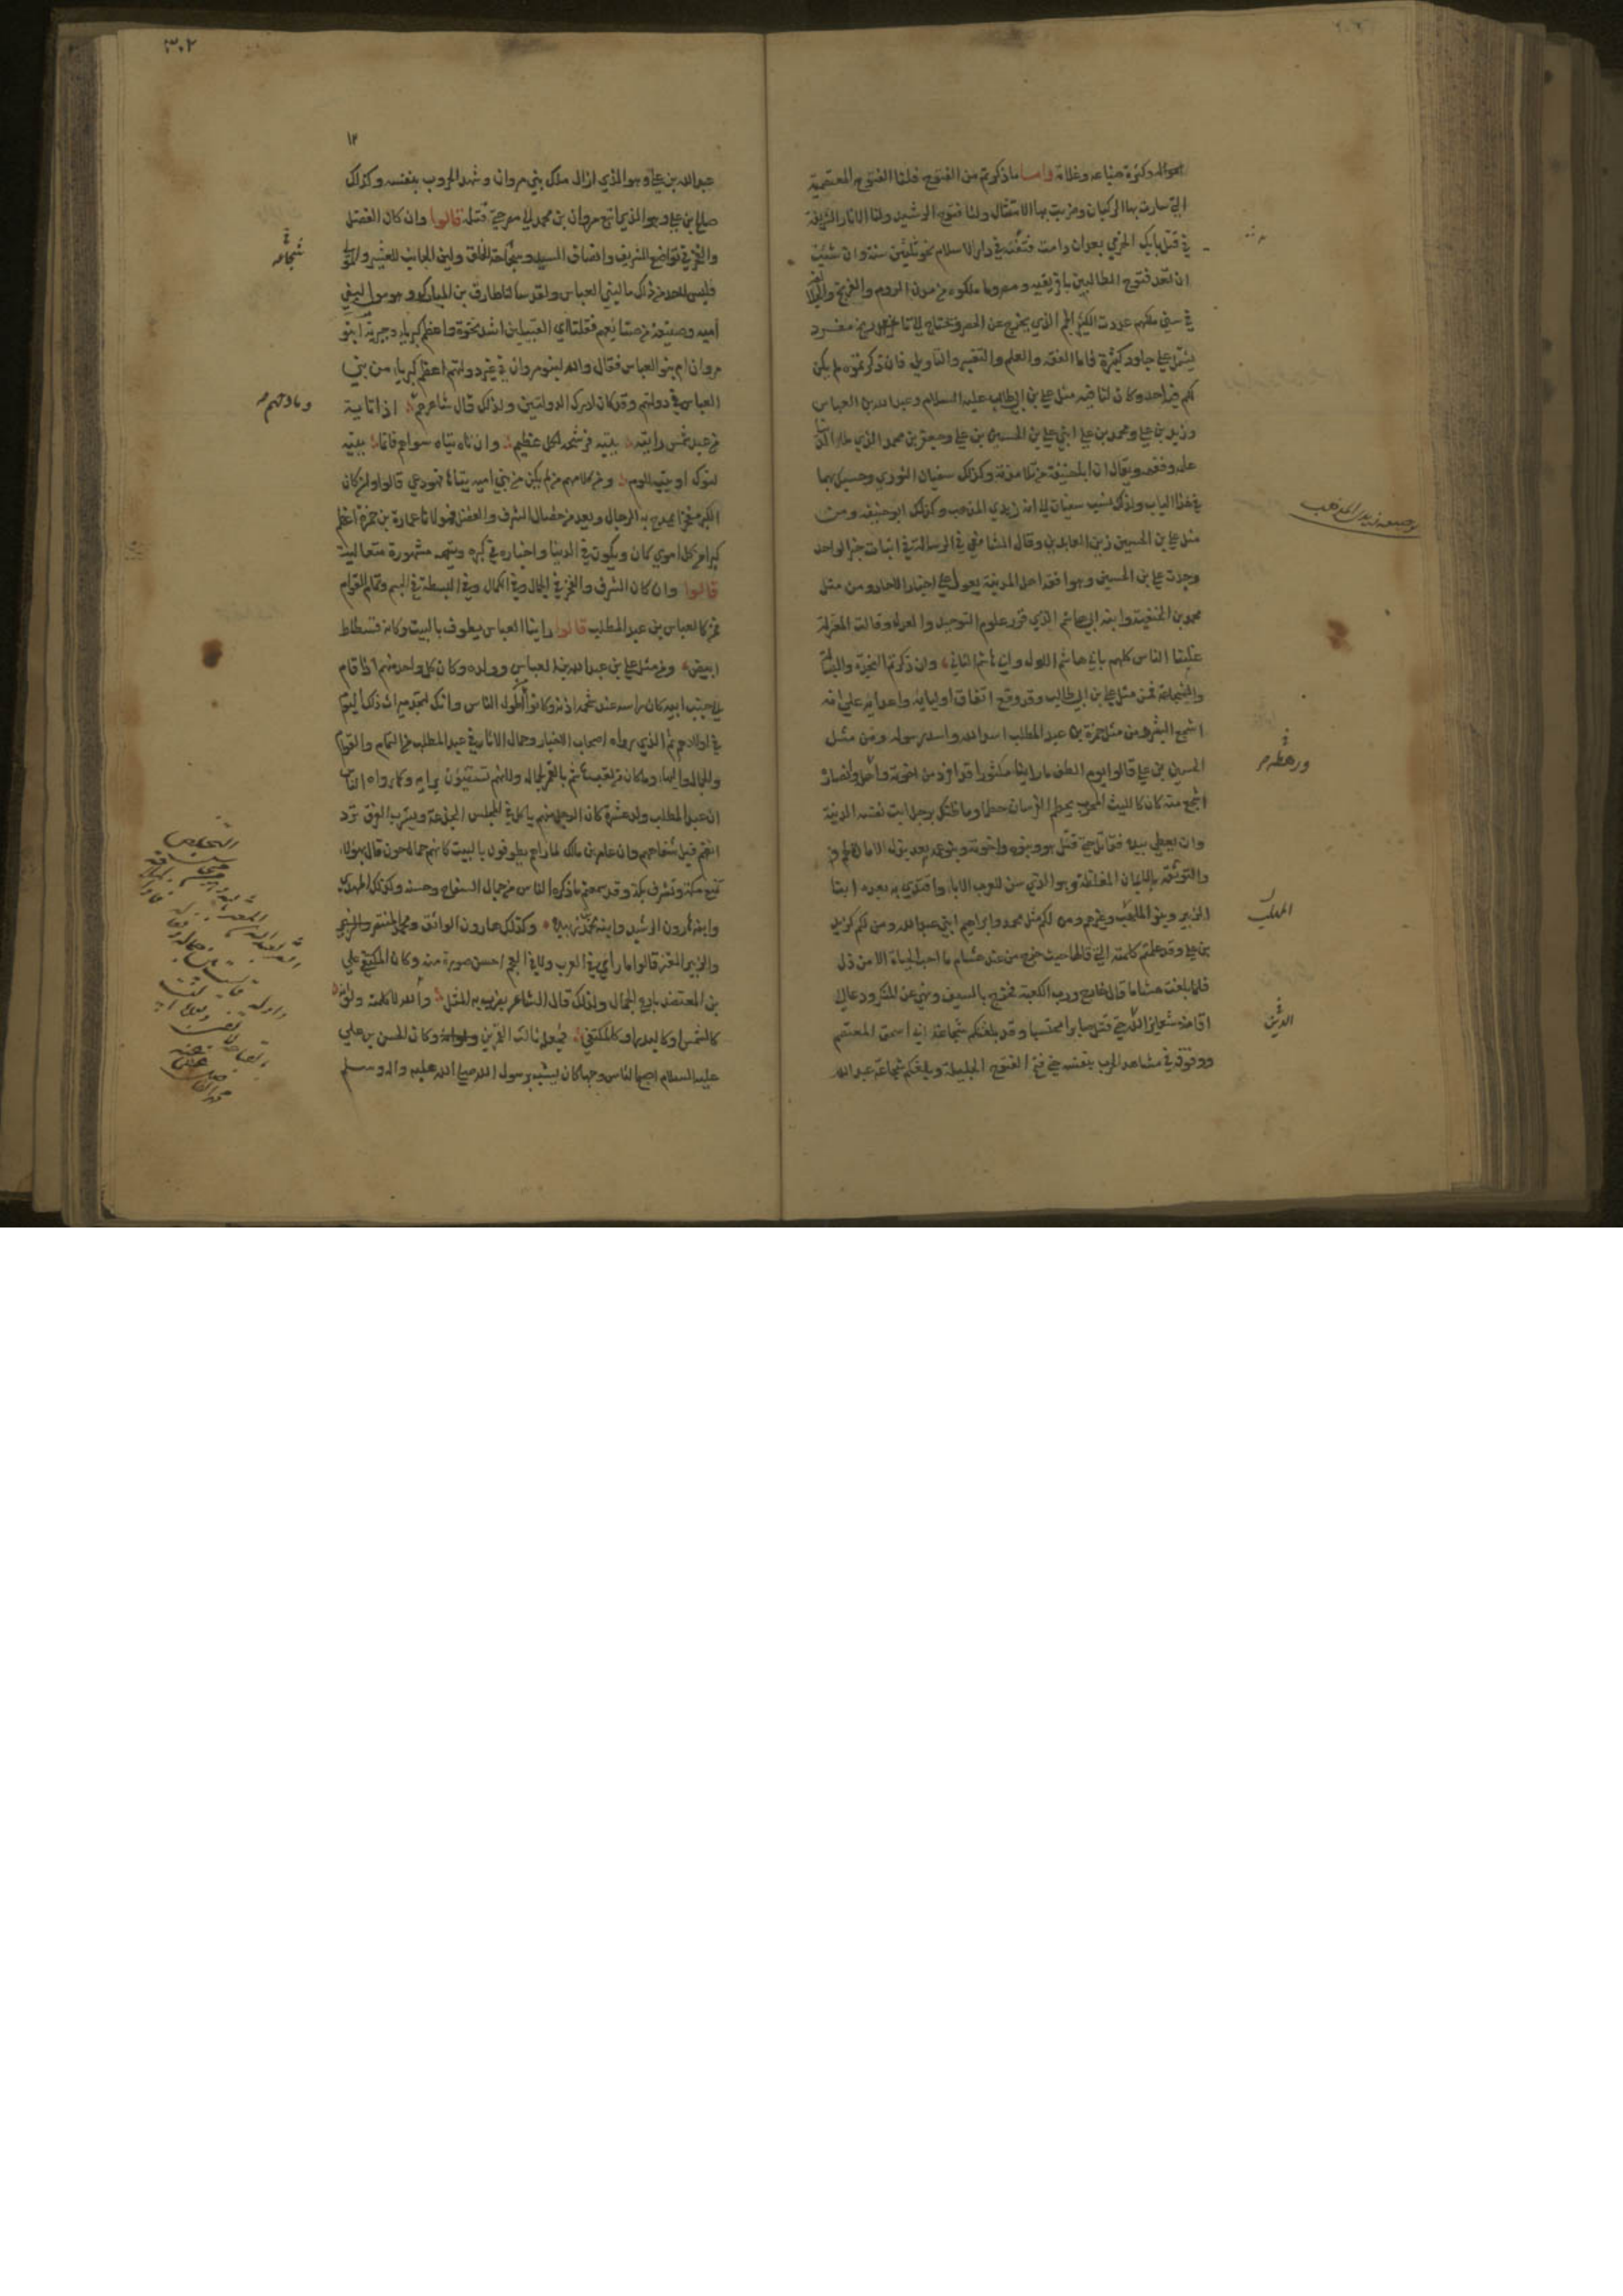 امواله وكثرة ضياعه وغلاته واما ما ذكرتم من الفتوح فلنا الفتوح المعتصمية
التي سارت بها الركبان وضربت بها الامثال ولنا فتوح الرشيد ولنا الاثار الشريفة
في قتل بابك الخرمي بعد ان دامت فتنته في دار الاسلام نحو ثلثين سنة وان شئت
ان تعد فتوح الطالبين بافريقيه ومصر وما ملكوه من مدن الروم والفرنج
في سني ملكهم عددت الكثير الجم الذي يخرج عن الحصر ويحتاج الى تاريخ مفرد
يشتمل على جلود كثيرة فاما الفقه والعلم والتفسير والتاويل فان ذكرتموه لم يكن
لكم فيه احد وكان لنا فيه مثل علي بن ابي طالب عليه السلام وعبد الله بن العباس
وزيد بن علي ومحمد بن علي ابني علي بن الحسين بن علي وجعفر بن محمد الذي ملأ الدنيا
علمه وفقهه ويقال ان ابا حنيفة من تلامذته وكذلك سفيان الثوري وحسبك بهما
في هذا الباب ولذلك نسب سفيان الى انه زيدي المذهب وكذلك ابو حنيفة ومن
مثل علي بن الحسين زين العابدين وقال الشافعي في الرسالة في اثبات خبر الواحد
وجدت علي بن الحسين وهو افقه اهل المدينة يعول على اخبار الاحاد ومن مثل
محمد بن الحنفية وابنه ابي هاشم الذي قرر علوم التوحيد والعدل وقالت المعتزلة
غلبنا الناس كلهم بابي هاشم الاول وابي هاشم الثاني وان ذكرتم النجدة والبسالة
والشجاعة فمن مثل علي بن ابي طالب وقد وقع اتفاق اوليائه واعدائه على انه
اشجع البشر ومن مثل حمزة بن عبد المطلب اسد الله واسد رسوله ومن مثل
الحسين بن علي قالوا يوم الطف ما راينا مكثورا قد افرد من اخوته واهله وانصاره
اشجع منه كان كالليث المحرب يحطم الفرسان حطما وما ظنك برجل ابت نفسه الدنية
وان يعطي بيده فقاتل حتى قتل هو وبنوه واخوته وبنو عمه بعد بذل الامان لهم
والتوثقة بالايمان المغلظة وهو الذي سن للعرب الاباء واقتدى به بعده ابنا
الزبير وبنو المهلب وغيرهم ومن لكم مثل محمد وابراهيم ابني عبد الله ومن لكم كزيد
بن علي وقد علمتم كلمته التي قالها حيث خرج من عند هشام ما احب الحياة الا من ذل
فلما بلغت هشاما قال خارج ورب الكعبة فخرج بالسيف ونهى عن المنكر ودعا الى
اقامة شعاير الله حتى قتل صابرا محتسبا وقد بلغكم شجاعة ابي اسحق المعتصم
ووقوفه في مشاهد الحرب بنفسه حتى فتح الفتوح الجليلة وبلغكم شجاعة عبد الله
ورهطه
المهلب
الدين
٣٠٢
١٢
عبد الله بن علي وهو الذي ازال ملك بني مروان وشهد الحروب بنفسه وكذلك
صالح بن علي وهو الذي اتبع مروان بن محمد الى مصر حتى قتله قالوا وان كان الفضل
والفخر في تواضع الشريف وانصاف السيد وسجاحة الخلق ولين الجانب للعشير والموالي
فليس لاحد من ذلك ما لبني العباس ولقد سالنا طارق بن المبارك وهو مولى لبني
امية وصنيعة من صنايعهم فقلنا اي القبيلين اشد نخوة واعظم كبرياء وجبرية ابنو
مروان ام بنو العباس فقال والله لبنو مروان في غير دولتهم اعظم كبرياء من بني
العباس في دولتهم وقد كان ادرك الدولتين ولذلك قال شاعرهم اذا تايه
من عبد شمس رايته يتيه فرشحه لكل عظيم وان تاه تياه سواهم فانما يتيه
لنوك او يتيه للوم ومن كلامهم من لم يكن من بني امية تياها فهو دعي قالوا وان كان
الكبر مفخرا يمدح به الرجال ويعد من خصال الشرف والفضل فمولانا عمارة بن حمزة اعظم
كبرا من كل اموي كان ويكون في الدنيا واخباره في كبره وتيهه مشهورة متعالمة
قالوا وان كان الشرف والفخر في الجمال وفي الكمال وفي البسطة في الجسم وتمام القوام
فمن كالعباس بن عبد المطلب قالوا راينا العباس يطوف بالبيت وكانه فسطاط
ابيض ومن مثل علي بن عبد الله بن العباس وولده وكان كل واحد منهم اذا قام
الى جنب ابيه كان راسه عند شحمة اذنه وكانوا اطول الناس وانك لتجد ميراث ذلك اليوم
في اولادهم ثم الذي رواه اصحاب الاخبار وحمال الاثار في عبد المطلب من التمام والقوام
والجمال والبهاء وما كان من لقب هاشم بالقمر لجماله ولانهم يستضيئون برايه وكما رواه الناس
ان عبد المطلب ولد عشرة كان الرجل منهم ياكل في المجلس الجذعة ويشرب الفرق ترد
انفهم قبل شفاههم وان عامر بن مالك لما راهم يطوفون بالبيت كانهم جمال جون قال بهؤلاء
تمنع مكة وتشرف مكة وقد سمعتم ما ذكره الناس من جمال السفاح وحسنه وكذلك المهدي
وابنه هارون الرشيد وابنه محمد بن زبيدة وكذلك هارون الواثق ومحمد المنتصر
والزبير المعتز قالوا ما رأي في العرب ولا في العجم احسن صورة منه وكان المكتفي علي
بن المعتضد بارع الجمال ولذلك قال الشاعر يضرب به المثل والله لا كلمته ولو انه
كالشمس او كالبدر او كالمكتفي فجعله ثالث القمرين وكان الحسن بن علي
عليه السلام اصبح الناس وجها كان يشبه برسول الله صلى الله عليه واله وسلم